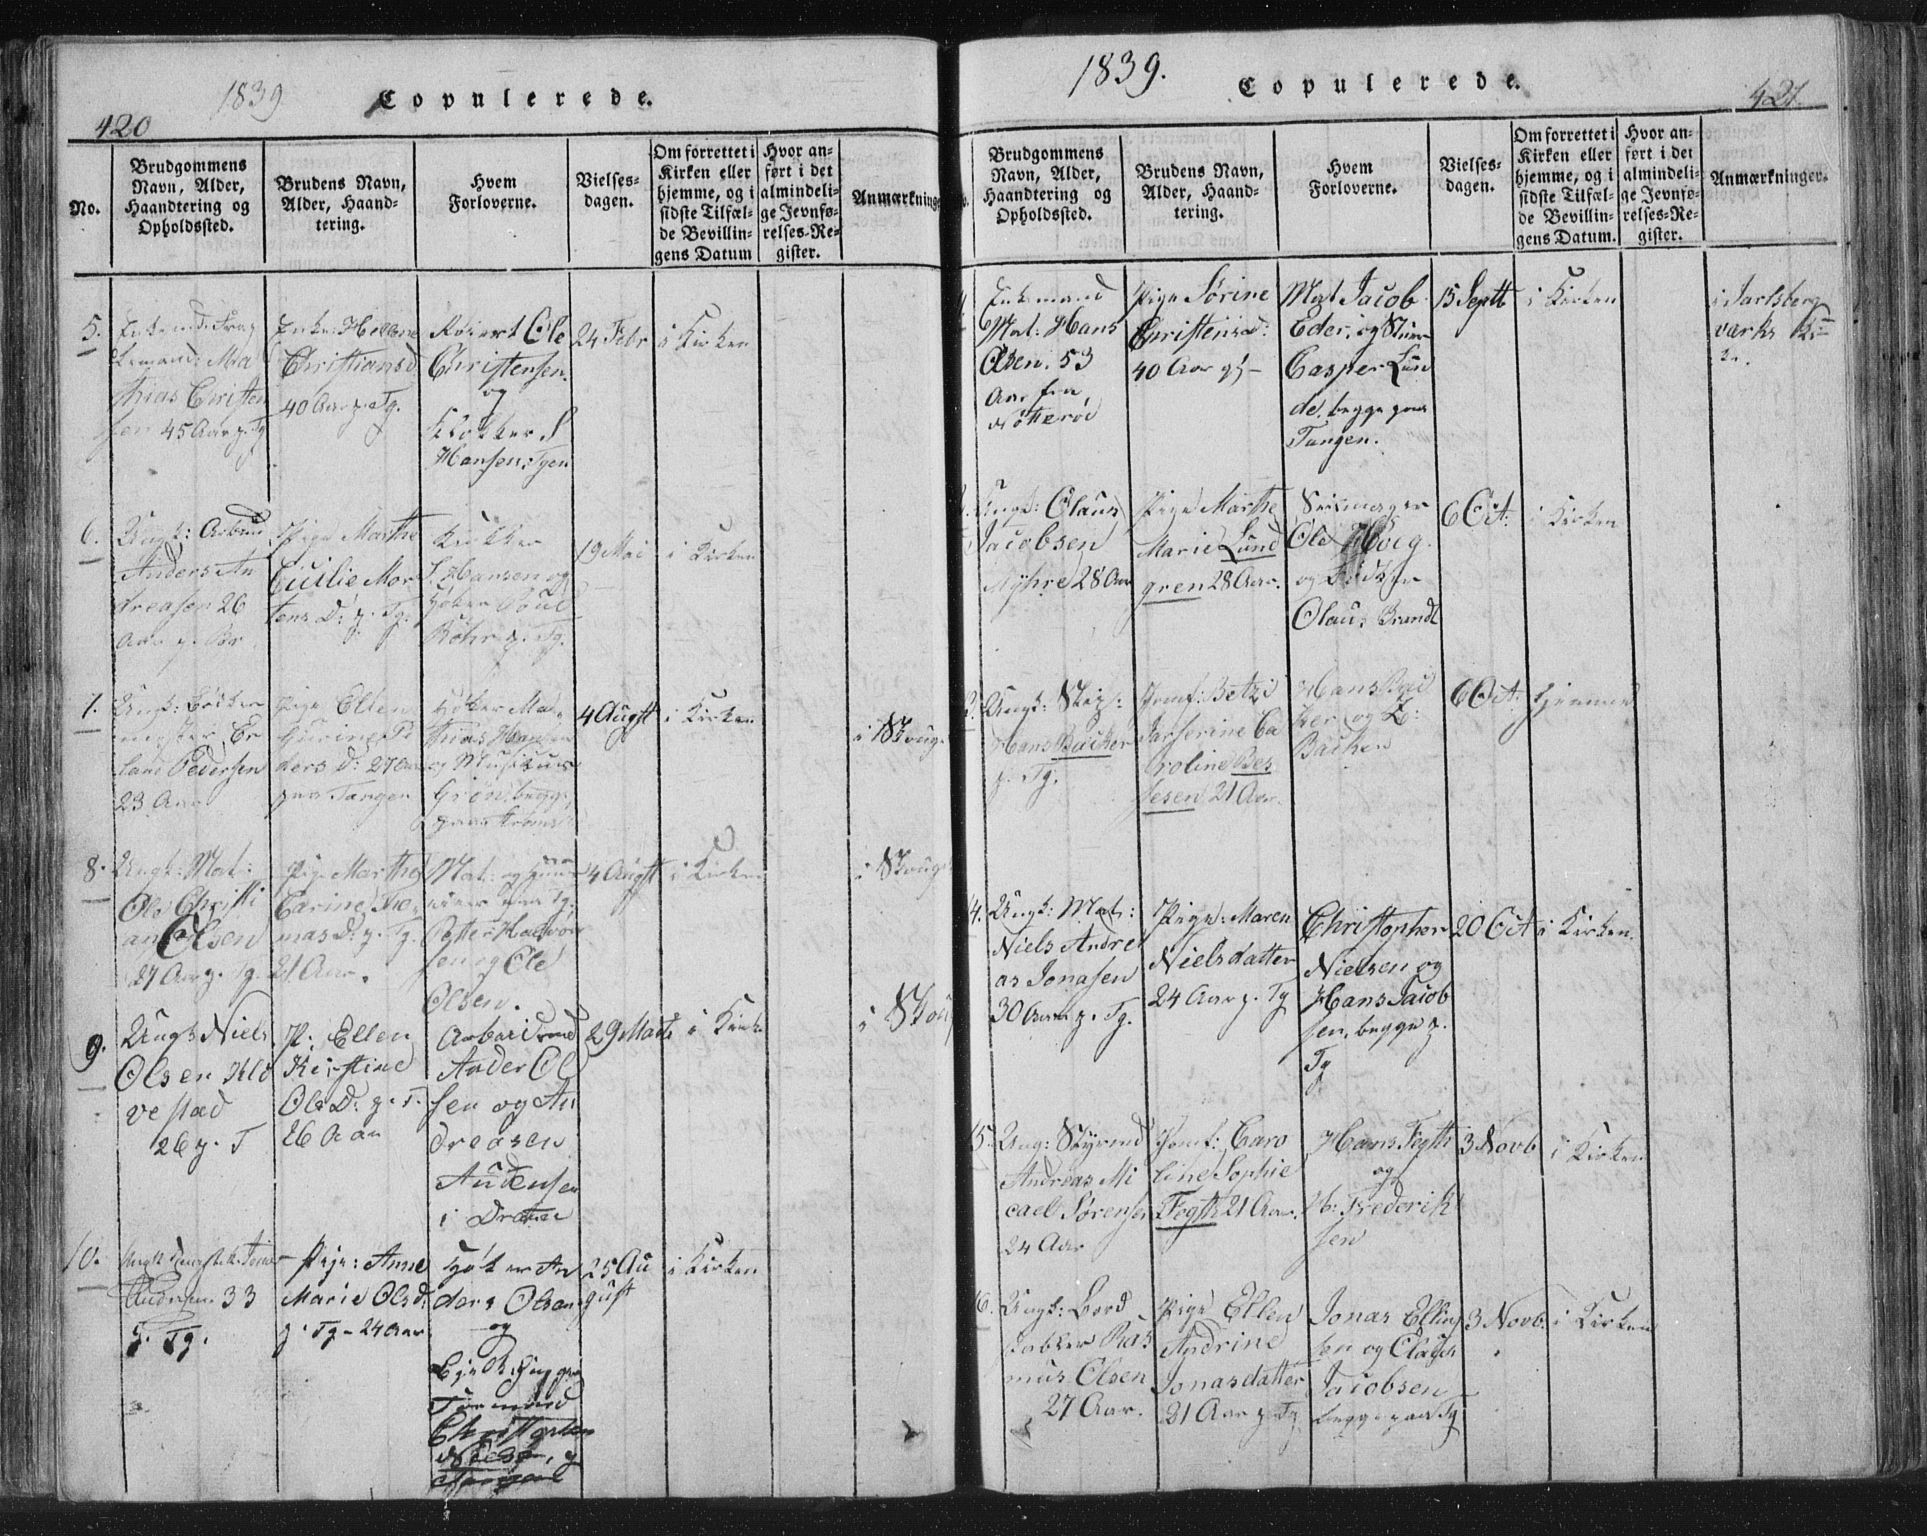 1839
Copulerede.
420
No.
Brudgommens
Navn, Alder,
Haandtering og
Opholdssted.
Brudens Navn,
Alder, Haand-
tering.
Hvem
Forloverne.
Vielses-
dagen.
Om forrettet i
Kirken eller
hjemme, og i
sidste Tilfæl-
de Bevillin-
gens Datum
Hvor an-
ført i det
almindeli-
ge Jevnfø-
relses-Re-
gister.
Anmærkninge
5.
Ma
thias Christen
sen 45 Aar p. Tg
Enke: Hellene
Christiansd
40 Aar p. Tg.
Ole
Christensen.
og
Klokker S
Hansen, Tgen
24 Febr
i Kirken
6.
Ungk: Arbm
Anders An
dreasen 26
Aar p.
Pige Marthe
Cicilie Mor
tens D: p. Tg.
Klokker
S. Hansen og
Høker Poul
Rohr p. Tg.
19 Mai
i Kirken
7.
Ungk:
Er
land Pedersen
23 Aar
Pige Ellen
Gurine Pe
ders D: 27 Aar
paa Tangen
Høker Ma
thias Hansen
og Musikus
Grøn, begge
paa
4 Augst
i Kirken
i Skoug.
8.
Ungk: Mat:
Ole Christi
an Olsen
27 Aar p. Tg.
Pige Marthe
Carine Tho
mas D: p. Tg.
21 Aar.
Mat: og
paa Tg.
Petter Halvor
sen og Ole
Olsen.
4 Augst
i Kirken
i Skoug
9.
Ungk Niels
Olsen Klo
vestad
26 p. T
P: Ellen
Kirstine
Ols D: p. T.
26 Aar
Arbeidsmd
Ander Ol
sen og An
dreasen
Andersen
i Dramen
29 Marts
i Kirke
i Skou
10.
33
p. Tg.
Pige: Anne
Marie Olsd:
p. Tg - 24 Aar
Høker An
ders Olsen
og
25 Au
gust
i Kirken
1839.
Copulerede.
421
Brudgommens
Navn, Alder,
Haandtering og
Opholdssted.
Brudens Navn,
Alder, Haand-
tering.
Hvem
Forloverne.
Vielses-
dagen.
Om forrettet i
Kirken eller
hjemme, og i
sidste Tilfæl-
de Bevillin-
gens Datum.
Hvor an-
ført i det
almindeli-
ge Jevnfø-
relses-Re-
gister.
Anmærkninger.
Enkemand
Mat: Hans
Olsen. 53
Aar fra
Nøtterøe
Pige Sørine
Christensd:
40 Aar
Mat Jacob
Eder, og
Casper Lun
de, begge paa
Tangen.
15 Septt
i Kirken
i Jarlsberg
værks
Ungk: Olaus
Jacobsen
Myhre 28 Aar
Pige Marthe
Marie Lund
gren 28 Aar.
Ole Høeg.
og
Olaus Brandt
6 Oct.
i Kirken
Ungk: Skip:
Hans Backer
p. Tg.
Jomf: Betzi
Ca
roline Bes
sesen 21 Aar.
Hans Bac
ker og
Backer
6 Oct.
hjemme
4.
Ungk: Mat:
Niels Andre
as Jonasen
30 Aar p. Tg.
Pige: Maren
Nielsdatter
24 Aar p. Tg
Christopher
Nielsen og
Hans Jacob
sen, begge p.
Tg
20 Oct
i Kirken.
15.
Ung: Styrmd
Andreas Mi
cael Sørensen
24 Aar
Jomf: Caro
line Sophie
Fegth 21 Aar.
Hans Fegth
og
Frederik
sen
3 Novb
i Kirken
6.
Ungk: Bord
Ras
mus Olsen
27 Aar.
Pige Ellen
Andrine
Jonasdatter
21 Aar p. Tg
Jonas Elling
sen og Claus
Jacobsen
begge paa Tg
3 Novb.
i Kirken